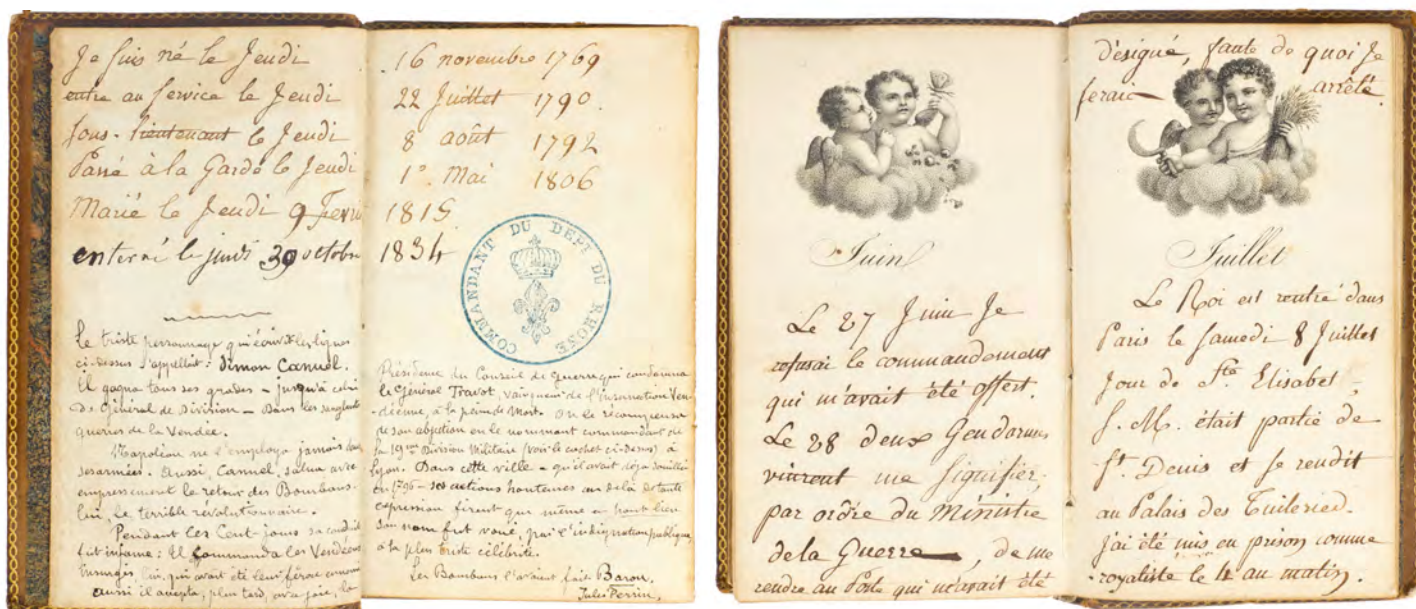 Je suis né le Jeudi 16 novembre 1769
entre au service le Jeudi 22 Juillet 1790.
sous-lieutenant le Jeudi 8 août 1792
Passé à la Garde le Jeudi 1er Mai 1806
Marié le Jeudi 9 Fevri 1815
enterré le jeudi 30 octobre 1834
COMMANDANT DU DEPT DU RHOSE
Le triste personnage qui écrivit les lignes
ci-dessus s'appellait : Simon Canuel.
Il gagna tous ses grades – jusqu'à celui
de Général de Division – Dans les sanglantes
guerres de la Vendée.
Napoléon ne l'employa jamais dans
ses armées. Aussi, Cannel, salua avec
empressement le retour des Bourbons.
lui, le terrible révolutionnaire.
Pendant les Cent-jours sa conduite
fut infame : Il commanda les Vendéens
Insurgés, lui, qui avait été leur féroce
aussi il accepta, plus tard, avec joie, la
Présidence du Conseil de Guerre qui condamna
le Général Travot, vainqueur de l'Insurrection Ven-
-déenne, à la peine de Mort. On le récompensa
de son abjection en le nommant commandant de
la 19eme Division Militaire (voir le cachet ci-dessus) à
Lyon. Dans cette ville – qu'il avait déjà souillée
en – ses actions honteuses au delà de toute
expression firent que même en haut lieu
son nom fut voué, par l'indignation publique,
à la plus triste célébrité.
Les Bourbons l'avaient fait Baron.
Jules Perrin.
Juin
Le 27 Juin Je
refusai le commandement
qui m'avait été offert.
Le 28 deux Gendarmes
vinrent me signifier,
par ordre du Ministre
de la Guerre, de me
rendre au Poste qui m'avait été
désigné, faute de quoi Je
serais arrêté.
Juillet
Le Roi est rentré dans
Paris le Samedi 8 Juillet
Jour de Ste Elisabet,
S. M. était partie de
St. Denis et se rendit
au Palais des Tuileries.
j'ai été mis en prison comme
royaliste le 4 au matin.